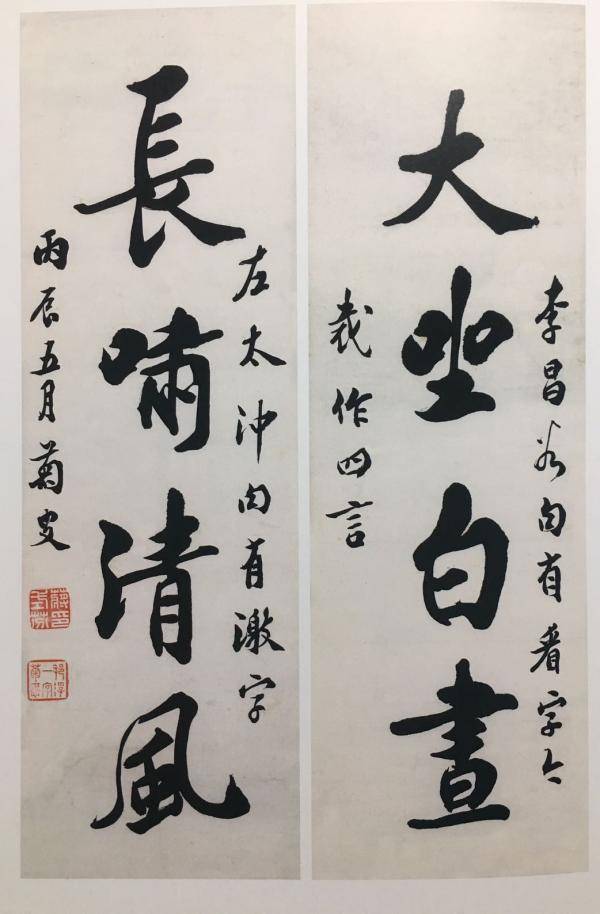 李昌谷句有看字今
大坐白晝
裁作四言
左太沖句有激字
長嘯清風
丙辰五月菊叟
蔣印式芬